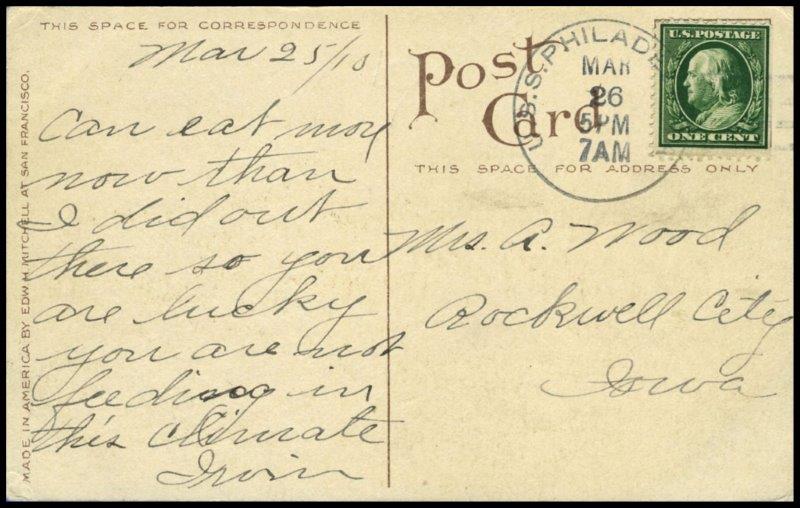 THIS SPACE FOR CORRESPONDENCE
Mar 25/10
Can eat more
now than
I did out
there so you
are lucky
you are not
feeding in
this climate
Irvin
MADE IN AMERICA BY EDW. H. MITCHELL AT SAN FRANCISCO.
Post
Card
THIS SPACE FOR ADDRESS ONLY
U.S.S. PHILADE
MAR
26
5PM
7AM
U.S. POSTAGE
ONE CENT
Mrs. A. Wood
Rockwell City
Iowa